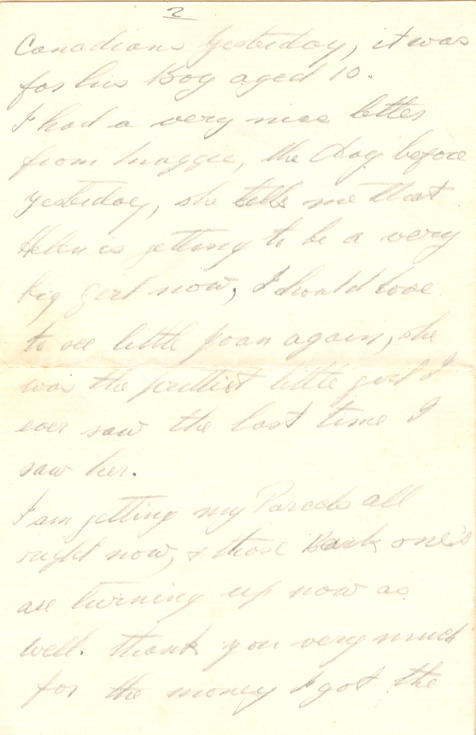 2
Canadians Yesterday, it was
for his Boy aged 10.
I had a very nice letter
from Maggie, the day before
yesterday, she tells me that
Helen is getting to be a very
big girl now, I should love
to see little Joan again, she
was the prettiest little girl I
ever saw the last time I
saw her.
I am getting my Parcels all
right now, & those Back one's
are turning up now as
well. thank you very much
for the money I got the